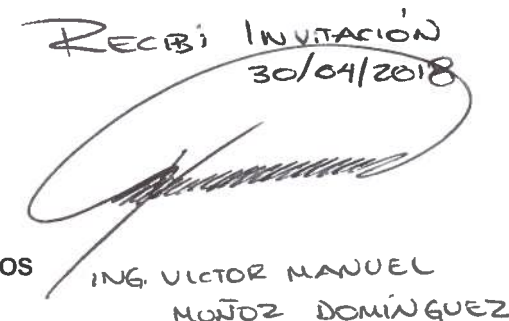 RECIBI INVITACIÓN
30/04/2018
OS ING. VICTOR MANUEL
MUÑOZ DOMÍNGUEZ